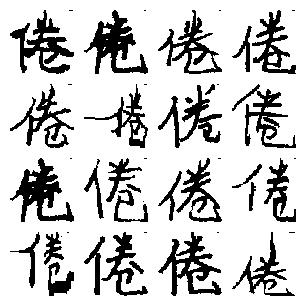 倦倦倦倦
倦倦倦倦
倦倦倦倦
倦倦倦倦